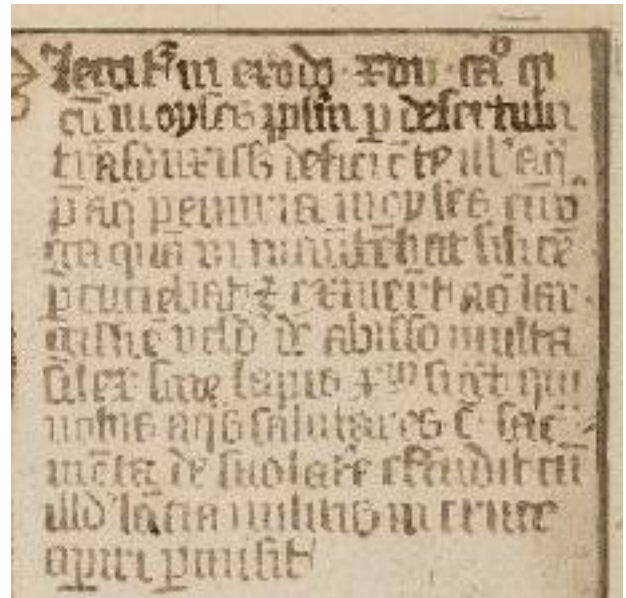 Legitᷣ in exodo xvii ca° qͥ
cū moyses ppłm p desertum
trāsduxissꝫ deficiētꝰ ill' aqͥ
p̄ aq̄ penuria moyses cū vͥ
ga quā in manu tēebat silicē
pcuciebat ⁊ exiuerūt aq̄ lar
gissie velud de abisso multa
silex siue lapis xpͫ sigͭ qui
nobis aqͣs salutares sͨ sac̄
mēta de suo latē effudit cū
illd' lācea militis in cruce
apiri pmisit